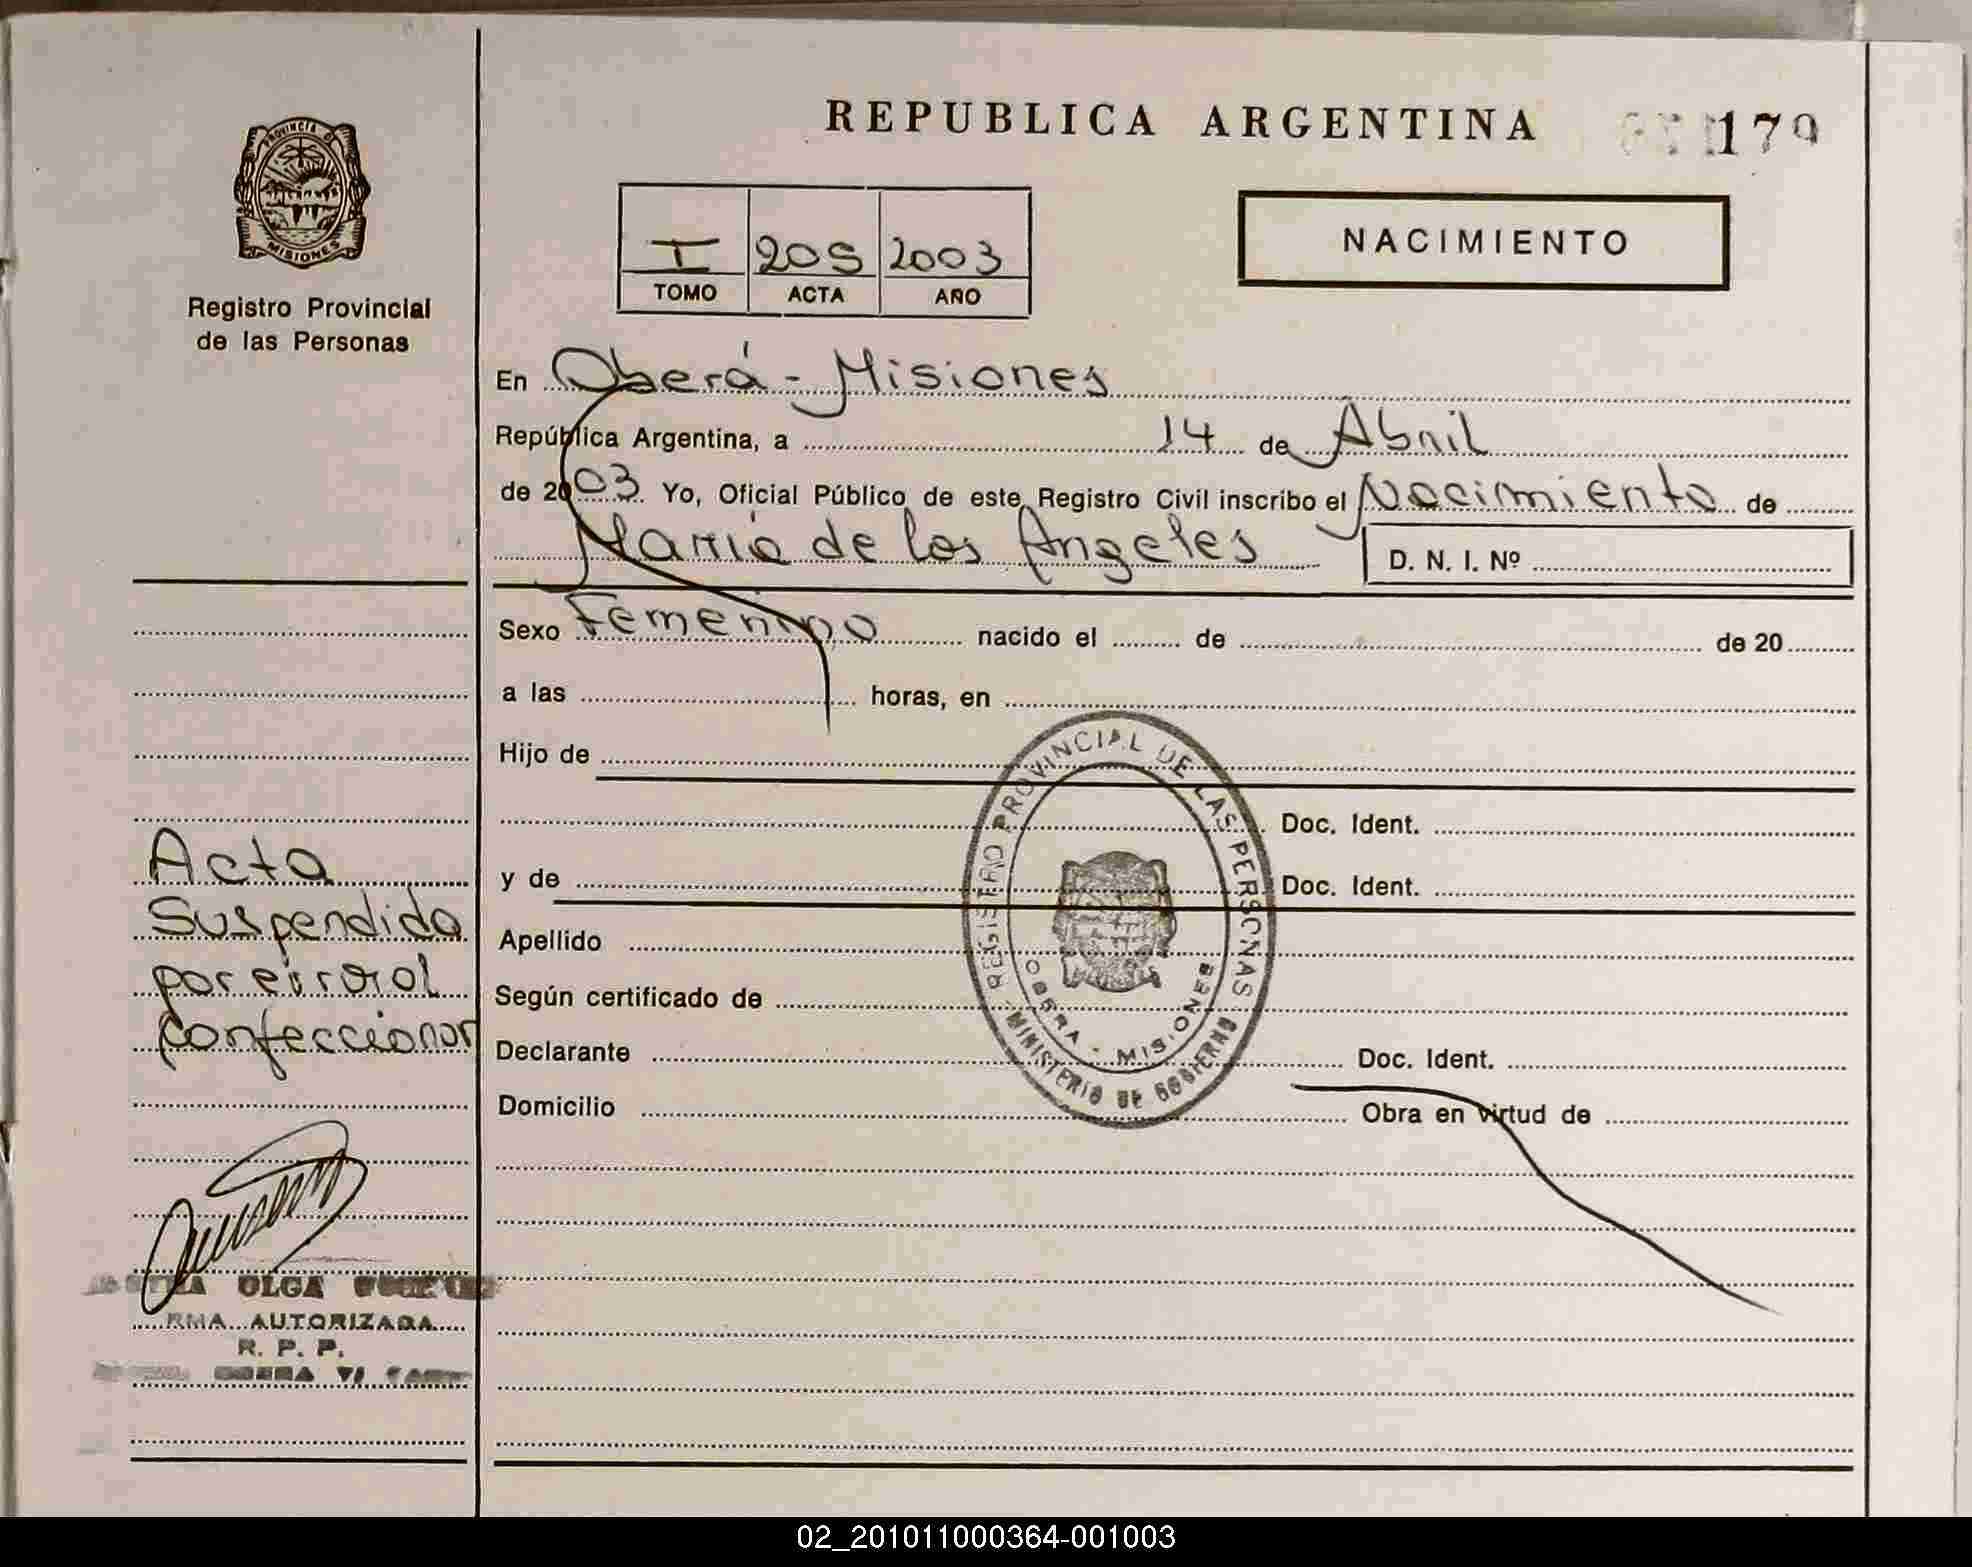 REPUBLICA ARGENTINA
179
PROVINCIA D MISIONES
Registro Provincial
de las Personas
I 205 2003
TOMO ACTA AÑO
NACIMIENTO
En Oberá - Misiones
República Argentina, a 14 de Abril
de 2003 Yo, Oficial Público de este Registro Civil inscribo el Nacimiento de
María de los Angeles D. N. I. Nº
Sexo Femenino nacido el de de 20
a las horas, en
Hijo de
Doc. Ident.
y de Doc. Ident.
Apellido
Según certificado de
Declarante Doc. Ident.
Domicilio Obra en virtud de
REGISTRO PROVINCIAL DE LAS PERSONAS
OBERA - MISIONES
MINISTERIO DE GOBIERNO
Acta
Suspendida
por error al
confeccionar
OLGA
RMA AUTORIZADA
R. P. P.
02_201011000364-001003